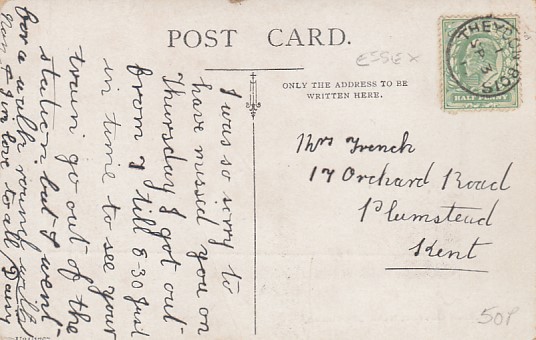 POST CARD.
ESSEX
ONLY THE ADDRESS TO BE
WRITTEN HERE.
THEYDON BOIS
HALF PENNY
I was so sorry to
have missed you on
Thursday I got out
from 7 till 8 30 Just
in time to see your
train go out of the
station but I went
for a walk round with
Nan I give love to all Daisy
Mrs French
17 Orchard Road
Plumstead
Kent
50P